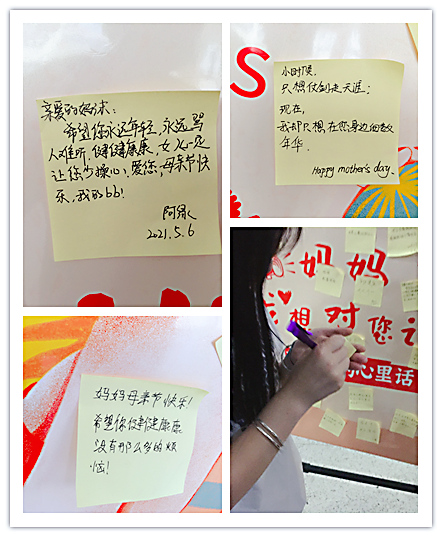 亲爱的妈咪：
希望你永远年轻,永远骂
人难听,健健康康,女儿一定
让你少操心、爱您,母亲节快
乐,我的bb!
2021.5.6
S
小时候,
只想仗剑走天涯;
现在,
我却只想在您身边细数
年华.
Happy mother's day.
妈妈母亲节快乐!
希望你健健康康
没有那么多的烦
恼!
妈妈
想对您说
心里话